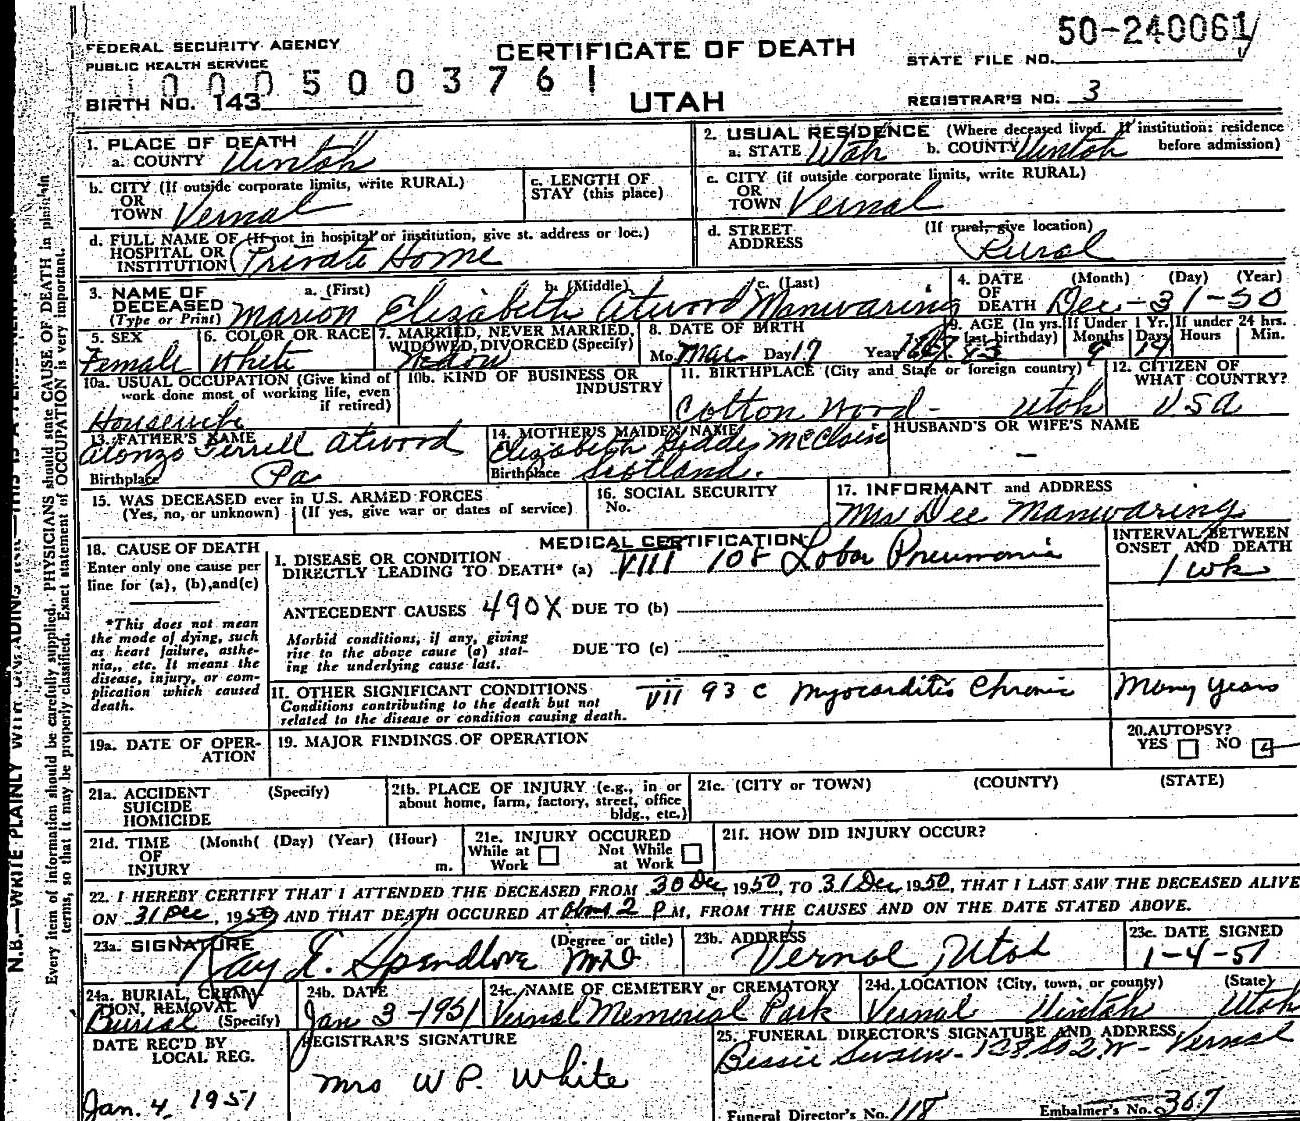 50-240061
FEDERAL SECURITY AGENCY
PUBLIC HEALTH SERVICE
CERTIFICATE OF DEATH
STATE FILE NO.
0005003761
BIRTH NO. 143
UTAH
REGISTRAR'S NO. 3
1. PLACE OF DEATH
a. COUNTY Uintah
2. USUAL RESIDENCE (Where deceased lived. If institution: residence before admission)
a. STATE Utah b. COUNTY Uintah
b. CITY (If outside corporate limits, write RURAL)
OR
TOWN Vernal
c. LENGTH OF
STAY (this place)
c. CITY (if outside corporate limits, write RURAL)
OR
TOWN Vernal
d. FULL NAME OF (If not in hospital or institution, give st. address or loc.)
HOSPITAL OR
INSTITUTION Private Home
d. STREET
ADDRESS
(If rural, give location)
Rural
3. NAME OF
DECEASED
(Type or Print)
a. (First) b. (Middle) c. (Last)
Marion Elizabeth Atwood Manwaring
4. DATE
OF
DEATH
(Month) (Day) (Year)
Dec-31-50
5. SEX
Female
6. COLOR OR RACE
White
7. MARRIED, NEVER MARRIED,
WIDOWED, DIVORCED (Specify)
Widow
8. DATE OF BIRTH
Mo. Mar. Day 17 Year 1867
9. AGE (In yrs.
last birthday)
83
If Under 1 Yr.
Months Days
9 14
If under 24 hrs.
Hours Min.
10a. USUAL OCCUPATION (Give kind of
work done most of working life, even
if retired)
Housewife
10b. KIND OF BUSINESS OR
INDUSTRY
11. BIRTHPLACE (City and State or foreign country)
Cotton Wood - Utah
12. CITIZEN OF
WHAT COUNTRY?
USA
13. FATHER'S NAME
Alonzo Ferrell Atwood
Birthplace Pa
14. MOTHER'S MAIDEN NAME
Elizabeth
Birthplace Scotland.
HUSBAND'S OR WIFE'S NAME
-
15. WAS DECEASED ever in U.S. ARMED FORCES
(Yes, no, or unknown) (If yes, give war or dates of service)
16. SOCIAL SECURITY
No.
17. INFORMANT and ADDRESS
Mrs Dee Manwaring
MEDICAL CERTIFICATION
INTERVAL BETWEEN
ONSET AND DEATH
18. CAUSE OF DEATH
Enter only one cause per
line for (a), (b), and (c)
I. DISEASE OR CONDITION
DIRECTLY LEADING TO DEATH* (a) VIII 108 Lobar Pneumonia
1 wk
ANTECEDENT CAUSES 490X DUE TO (b)
*This does not mean
the mode of dying, such
as heart failure, asthe-
nia,, etc. It means the
disease, injury, or com-
plication which caused
death.
Morbid conditions, if any, giving
rise to the above cause (a) stat-
ing the underlying cause last.
DUE TO (c)
II. OTHER SIGNIFICANT CONDITIONS
Conditions contributing to the death but not
related to the disease or condition causing death.
VII 93 c Myocarditis Chronic
Many years
19a. DATE OF OPER-
ATION
19. MAJOR FINDINGS OF OPERATION
20. AUTOPSY?
YES NO
21a. ACCIDENT
SUICIDE
HOMICIDE
(Specify)
21b. PLACE OF INJURY (e.g., in or
about home, farm, factory, street, office
bldg., etc.)
21c. (CITY or TOWN) (COUNTY) (STATE)
21d. TIME
OF
INJURY
(Month( (Day) (Year) (Hour)
m.
21e. INJURY OCCURED
While at Work Not While at Work
21f. HOW DID INJURY OCCUR?
22. I HEREBY CERTIFY THAT I ATTENDED THE DECEASED FROM 30 Dec, 1950, TO 31 Dec 1950, THAT I LAST SAW THE DECEASED ALIVE
ON 31 Dec, 1950 AND THAT DEATH OCCURED AT 2 P M, FROM THE CAUSES AND ON THE DATE STATED ABOVE.
23a. SIGNATURE (Degree or title)
Ray E. Spendlove MD
23b. ADDRESS
Vernal, Utah
23c. DATE SIGNED
1-4-51
24a. BURIAL, CREMA-
TION, REMOVAL
(Specify)
Burial
24b. DATE
Jan 3-1951
24c. NAME OF CEMETERY or CREMATORY
Vernal Memorial Park
24d. LOCATION (City, town, or county) (State)
Vernal Uintah Utah
DATE REC'D BY
LOCAL REG.
Jan. 4, 1951
REGISTRAR'S SIGNATURE
Mrs W P. White
25. FUNERAL DIRECTOR'S SIGNATURE AND ADDRESS
Bessie Swain - 128 So 2 W - Vernal
Funeral Director's No. 118
Embalmer's No. 367
Every item of information should be carefully supplied. PHYSICIANS should state CAUSE OF DEATH in plain
terms, so that it may be properly classified. Exact statement of OCCUPATION is very important.
N.B.—WRITE PLAINLY WITH